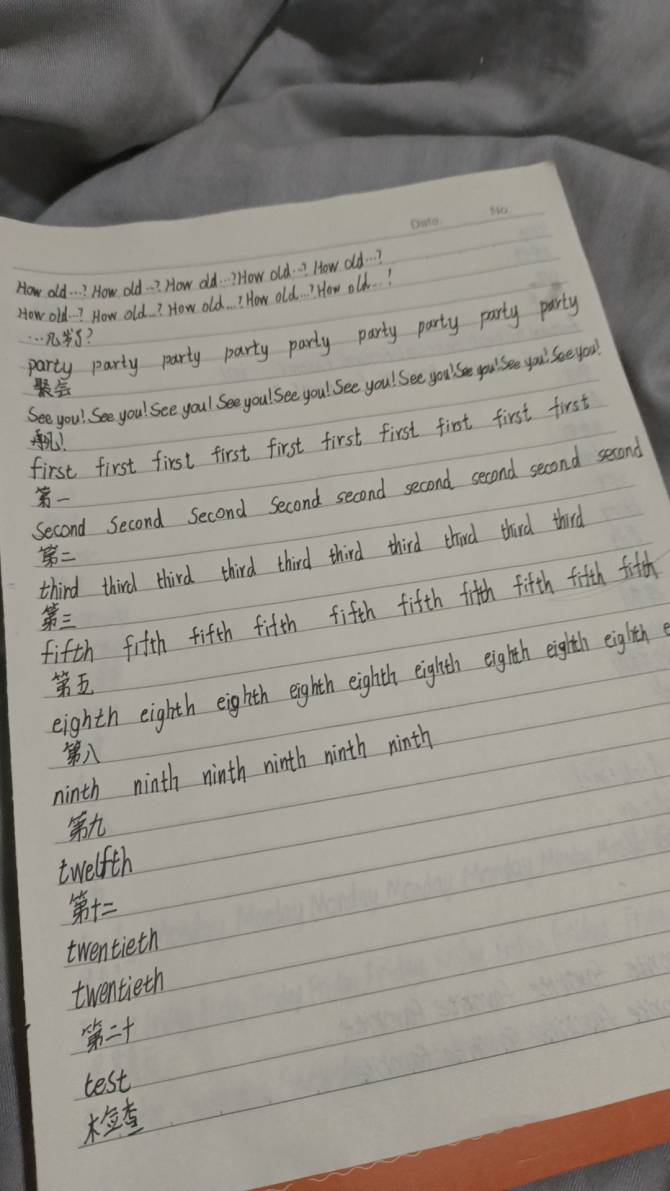 Date. No.
How old...? How old...? How old...? How old...? How old...?
How old...? How old...? How old...? How old...? How old...!
...几岁了?
party party party party party party party party party
聚会
See you! See you! See you! See you! See you! See you! See you! See you! See you! See you!
再见!
first first first first first first first first first first
第一
second second second second second second second second second
第二
third third third third third third third third third
第三
fifth fifth fifth fifth fifth fifth fifth fifth fifth fifth
第五
eighth eighth eighth eighth eighth eighth eighth eighth eighth e
第八
ninth ninth ninth ninth ninth ninth
第九
twelfth
第十二
twentieth
twentieth
第二十
test
检查